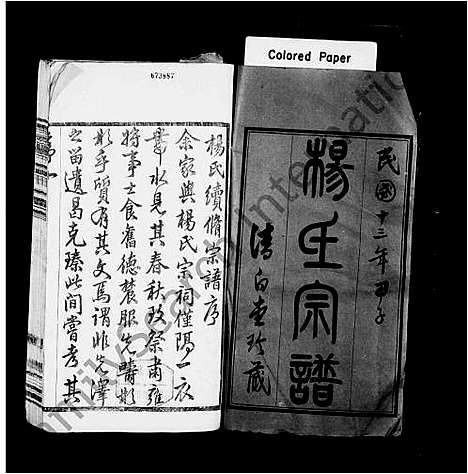 Colored Paper
673987
民國十三年甲子
楊氏宗譜
清白堂珍藏
楊氏續脩宗譜序
余家與楊氏宗祠僅隔一衣
帶水見其春秋致祭肅雍
將事士食舊德農服先疇彬
彬乎質有其文焉謂非先澤
之留遺曷克臻此間嘗考其
FamilySearch International